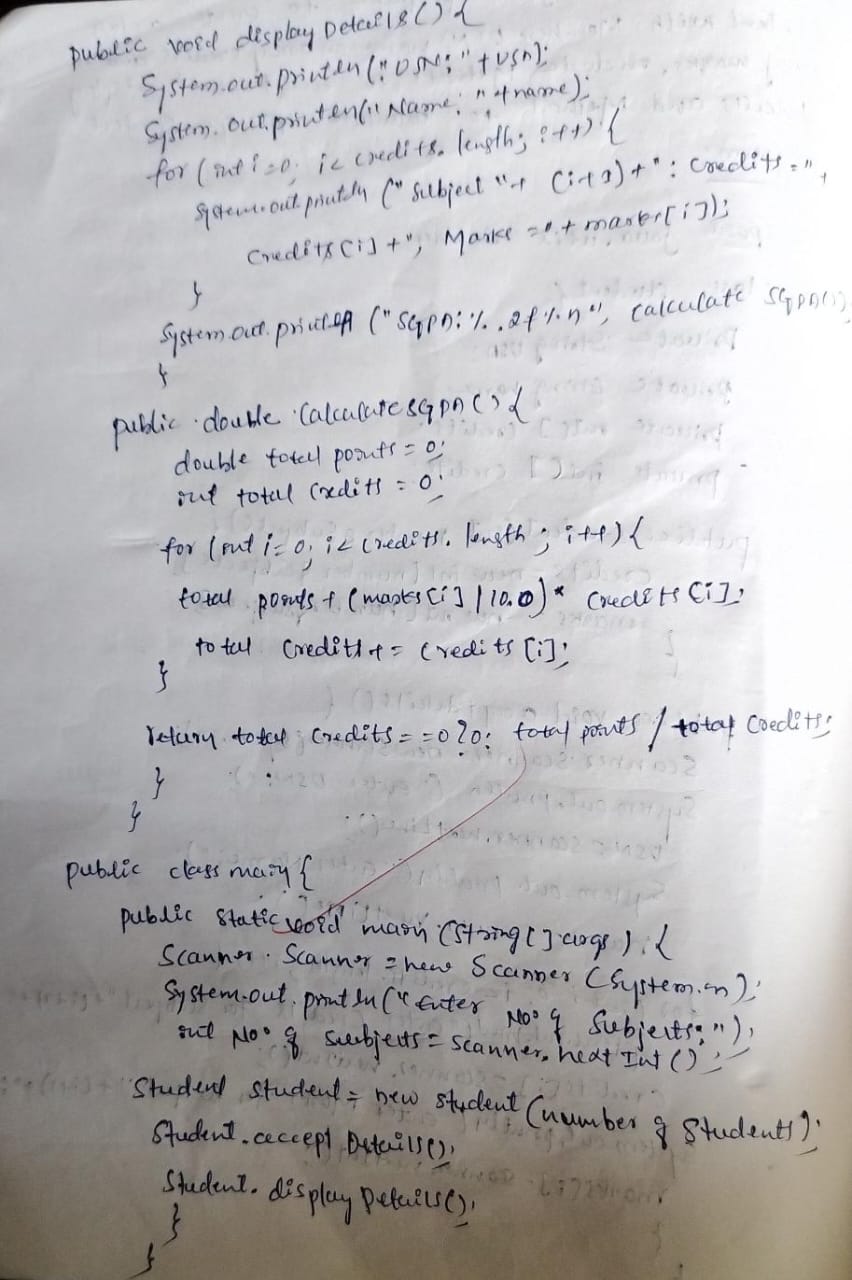 public void display Details () {
System.out.println ("USN: " + usn);
System.out.println (" Name: " + name);
for (int i=0; i< credits. length; i++) {
System.out.println (" Subject " + (i+1) + " : Credits = " +
Credits [i] + ", Marks = " + marks [i]);
}
System.out.println (" SGPA: %. 2f %n ", calculate SGPA());
}
public double Calculate SGPA () {
double total points = 0;
int total Credits = 0;
for (int i=0; i< Credits. length ; i++) {
total points + (marks [i] / 10.0) * Credits [i];
total Credits += Credits [i];
}
return total Credits == 0 ? 0 : total points / total Credits;
}
}
public class main {
public static void main (String [] args ) {
Scanner Scanner = new Scanner (System.in);
System.out.println (" Enter No. of Subjects: ");
int No. of Subjects = scanner. next Int () ;
Student student = new student (number of Students);
Student. accept Details ();
Student. display Details ();
}
}